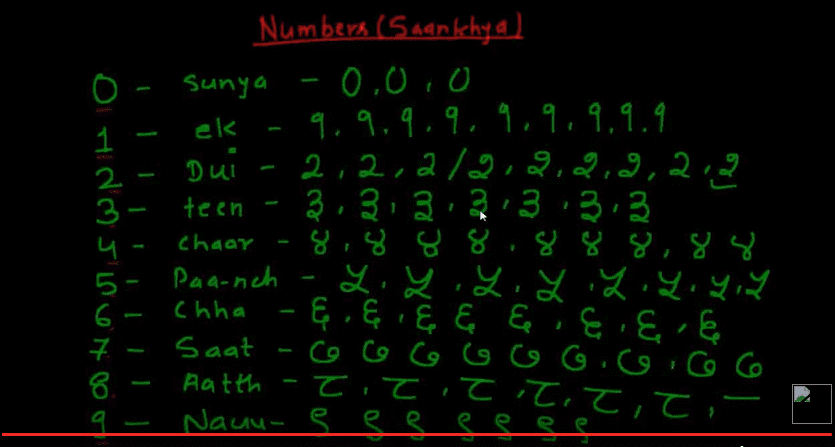 Numbers (Saankhya)
0 - Sunya - ०, ०, ०
1 - ek - १, १, १, १, १, १, १, १, १
2 - Dui - २, २, २ / २, २, २, २, २, २
3 - teen - ३, ३, ३, ३, ३, ३, ३
4 - chaar - ४, ४ ४ ४, ४ ४ ४, ४ ४
5 - Paa-nch - ५, ५, ५, ५, ५, ५, ५, ५
6 - Chha - ६, ६, ६ ६ ६, ६, ६, ६
7 - Saat - ७ ७ ७ ७ ७ ७, ७, ७ ७
8 - Aatth - ८, ८, ८, ८, ८, ८,
9 - Nauu - ९ ९ ९ ९ ९ ९ ९